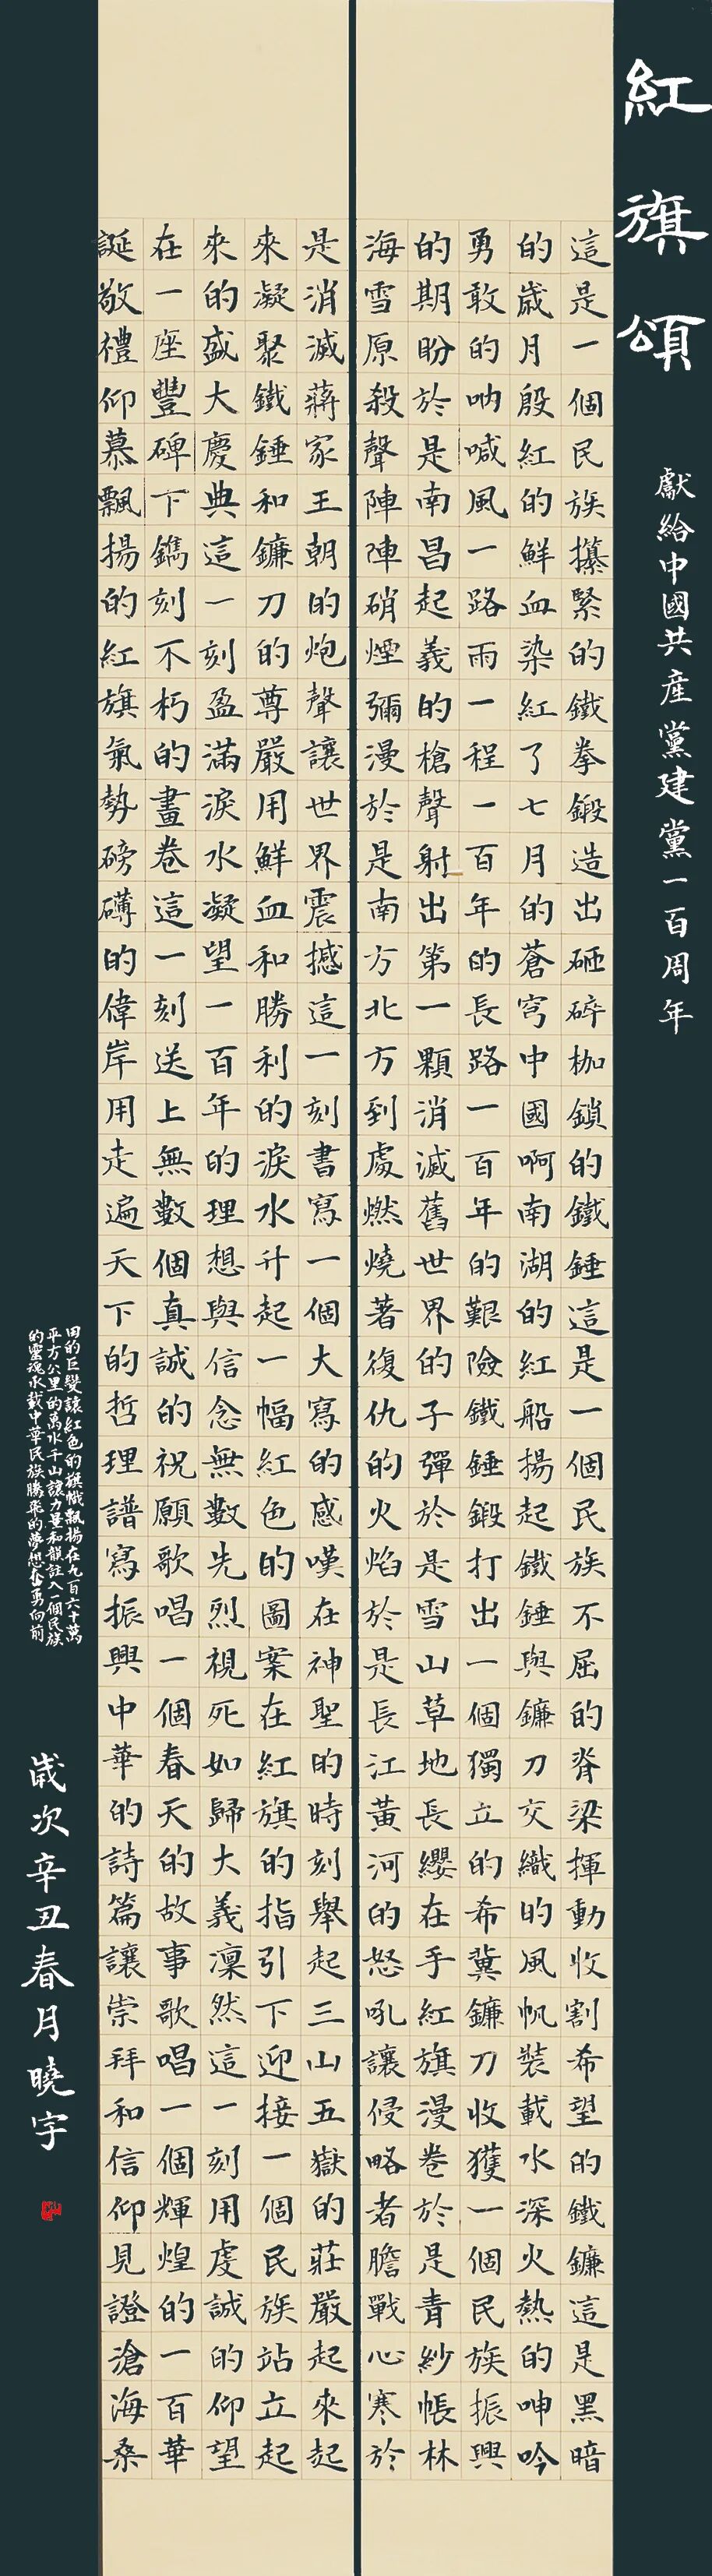 紅旗頌
獻給中國共産黨建黨一百周年
這是一個民族攥緊的鐵拳鍛造出砸碎枷鎖的鐵錘這是一個民族不屈的脊梁揮動收割希望的鐵鐮這是黑暗
的歲月殷紅的鮮血染紅了七月的蒼穹中國啊南湖的紅船揚起鐵錘與鐮刀交織的風帆裝載水深火熱的呻吟
勇敢的吶喊風一路雨一程一百年的長路一百年的艱險鐵錘鍛打出一個獨立的希冀鐮刀收獲一個民族振興
的期盼於是南昌起義的槍聲射出第一顆消滅舊世界的子彈於是雪山草地長纓在手紅旗漫卷於是青紗帳林
海雪原殺聲陣陣硝煙彌漫於是南方北方到處燃燒著復仇的火焰於是長江黃河的怒吼讓侵略者膽戰心寒於
是消滅蔣家王朝的炮聲讓世界震撼這一刻書寫一個大寫的感嘆在神聖的時刻舉起三山五嶽的莊嚴起來起
來凝聚鐵錘和鐮刀的尊嚴用鮮血和勝利的淚水升起一幅紅色的圖案在紅旗的指引下迎接一個民族站立起
來的盛大慶典這一刻盈滿淚水凝望一百年的理想與信念無數先烈視死如歸大義凜然這一刻用虔誠的仰望
在一座豐碑下鐫刻不朽的畫卷這一刻送上無數個真誠的祝願歌唱一個春天的故事歌唱一個輝煌的一百華
誕敬禮仰慕飄揚的紅旗氣勢磅礴的偉岸用走遍天下的哲理譜寫振興中華的詩篇讓崇拜和信仰見證滄海桑
田的巨變讓紅色的旗幟飄揚在九百六十萬
平方公里的萬水千山讓力量和韻註入一個民族
的靈魂承載中華民族騰飛的夢想奮勇向前
歲次辛丑春月曉宇